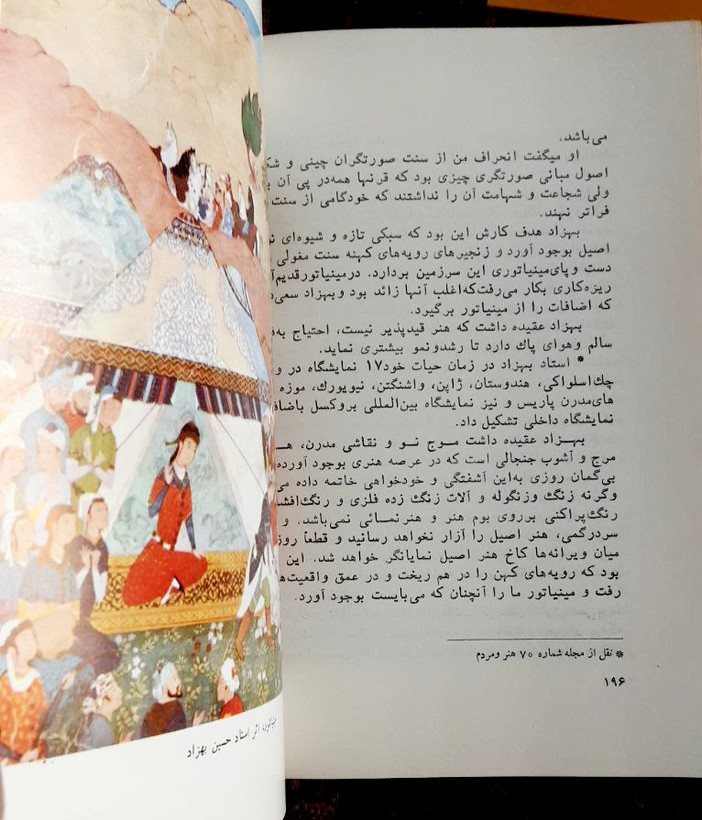 می‌باشد.
او میگفت انحراف من از سنت صورتگران چینی و
اصول مبانی صورتگری چیزی بود که قرنها همه‌در پی آن
ولی شجاعت و شهامت آن را نداشتند که خودگامی از سنت
فراتر نهند.
بهزاد هدف کارش این بود که سبکی تازه و شیوه‌ای
اصیل بوجود آورد و زنجیرهای رویه‌های کهنه سنت مغولی
دست و پای‌مینیاتوری این سرزمین بردارد. درمینیاتورقدیم
ریزه‌کاری بکار می‌رفت‌که‌اغلب آنها زائد بود وبهزاد
که اضافات را از مینیاتور برگیرد.
بهزاد عقیده داشت که هنر قیدپذیر نیست، احتیاج
سالم وهوای پاك دارد تا رشدونمو بیشتری نماید.
* استاد بهزاد در زمان حیات خود۱۷ نمایشگاه در
چك‌اسلواکی، هندوستان، ژاپن، واشنگتن، نیویورك، موزه
های‌مدرن پاریس و نیز نمایشگاه بین‌المللی بروکسل
نمایشگاه داخلی تشکیل داد.
بهـزاد عقیده داشت مـوج نـو و نقاشی مدرن،
مرج و آشوب جنجالی است که در عرصه هنری بوجود آورده
بی‌گمان روزی به‌این آشفتگی و خودخواهی خاتمه داده
وگرنه زنگ وزنگوله و آلات زنگ زده فلزی و
رنگ‌پراکنی برروی بوم هنر و هنرنمـائی نمی‌باشد. و
سردرگمی، هنر اصیل را آزار نخواهد رسانید و قطعاً
میان ویرانه‌ها کاخ هنر اصیل نمایانگر خواهد شد. این
بود که رویه‌های کهن را در هم ریخت و در عمق
رفت و مینیاتور ما را آنچنان که می‌بایست بوجود آورد.
* نقل از مجله شماره ۷۰ هنر ومردم
۱۹۶
مینیاتور، اثر استاد حسین بهزاد